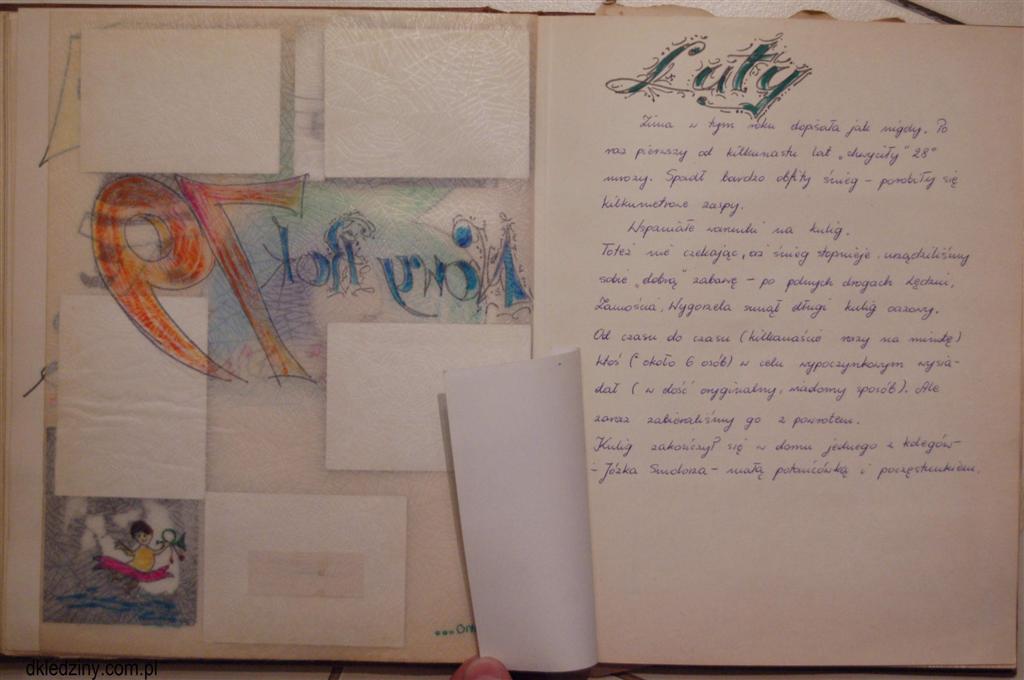 Nowy Rok
79
Luty
Zima w tym roku dopisała jak nigdy. Po
raz pierwszy od kilkunastu lat „chwyciły" 28°
mrozy. Spadł bardzo obfity śnieg – porobiły się
kilkumetrowe zaspy.
Wspaniałe warunki na kulig.
Toteż nie czekając, aż śnieg stopnieje, urządziliśmy
sobie „dobrą" zabawę – po polnych drogach Lędzin,
Zamościa, Wygorzela sunął długi kulig oazowy.
Od czasu do czasu (kilkanaście razy na minutę)
ktoś (około 6 osób) w celu wypoczynkowym wysia-
dał (w dość oryginalny, wiadomy sposób). Ale
zaraz zabieraliśmy go z powrotem.
Kulig zakończył się w domu jednego z kolegów
– Józka Smolorza – małą potańcówką i poczęstunkiem.
dkledziny.com.pl